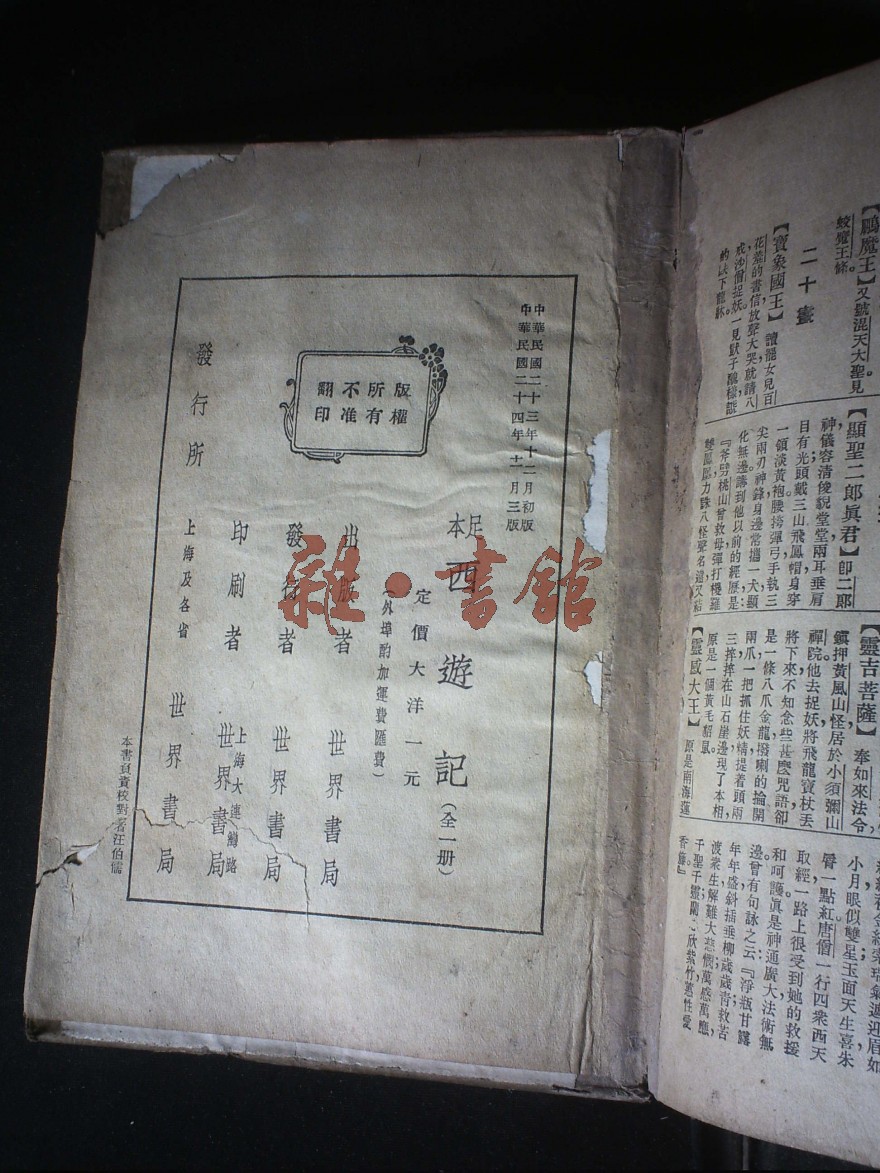 【鵬魔王】又號混天大聖見
蛟魔王條。
二十畫
【寶象國王】讀罷女兒百
花羞的書信放聲大哭就請八
戒沙僧捉妖一見獃子醜樣
【顯聖二郎眞君】卽二郎
神儀容清俊貌堂堂兩耳垂肩
目有光頭戴三山飛鳳帽身穿
一領淡黃袍腰挎彈弓手執三
尖兩刃神鋒身邊常擕一犬顯
化無邊講到他以前的經歷是
『斧劈桃山曾救母彈打椶羅
雙鳳凰力誅八怪聲名遠又結
【靈吉菩薩】奉如來法令
鎮押黃風山怪居於小須彌山
禪院他去捉妖將飛龍寶杖丟
將下來不知念些甚麽咒語卻
是一條八爪金龍撥喇的掄開
兩爪一把抓住妖精提着頭兩
三捽捽在山石崖邊現了本相
原是一個黃毛貂鼠。
【靈感大王】原是南海蓮
小月眼似雙星玉面天生喜朱
脣一點紅唐僧一行四衆西天
取經一路上很受到她的救援
和呵護眞是神通廣大法術無
邊曾有句詠之云『淨瓶甘露
年年盛斜插垂柳歲歲靑救苦
渡衆生解難大慈憫萬感萬應
千聖千靈蘭心欣紫竹蕙性愛
香藤』
中華民國二十三年十二月初版
中華民國二十四年十一月三版
足本 西遊記（全一册）
定價大洋一元
（外埠酌加運費匯費）
版權
所有
不准
翻印
出版者 世界書局
發行者 世界書局
印刷者 上海大連灣路 世界書局
發行所 上海及各省 世界書局
本書負責校對者汪伯儒
雜·書館